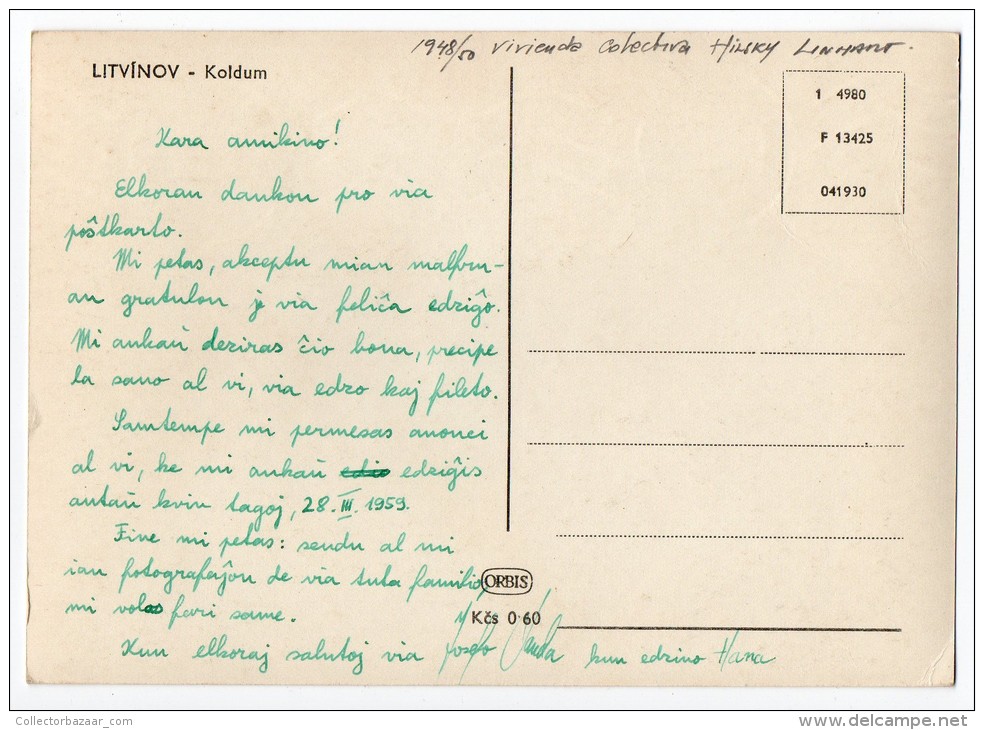 1948/50 vivienda colectiva HILSKY LINHART.
LITVÍNOV - Koldum
1 4980
F 13425
041930
Kara amikino!
Elkoran dankon pro via
poŝtkarto.
Mi petas, akceptu mian malfru-
an gratulon je via feliĉa edziĝo.
Mi ankaŭ deziras ĉio bona, precipe
la sano al vi, via edzo kaj fileto.
Samtempe mi permesas anonci
al vi, ke mi ankaŭ edziĝis
antaŭ kvin tagoj, 28. III. 1959.
Fine mi petas: sendu al mi
ian fotografaĵon de via tuta familio,
mi volas fari same.
Kun elkoraj salutoj via Jozefo kun edzino Hana
ORBIS
Kčs 0·60
Collectorbazaar_com
www.delcampe.net